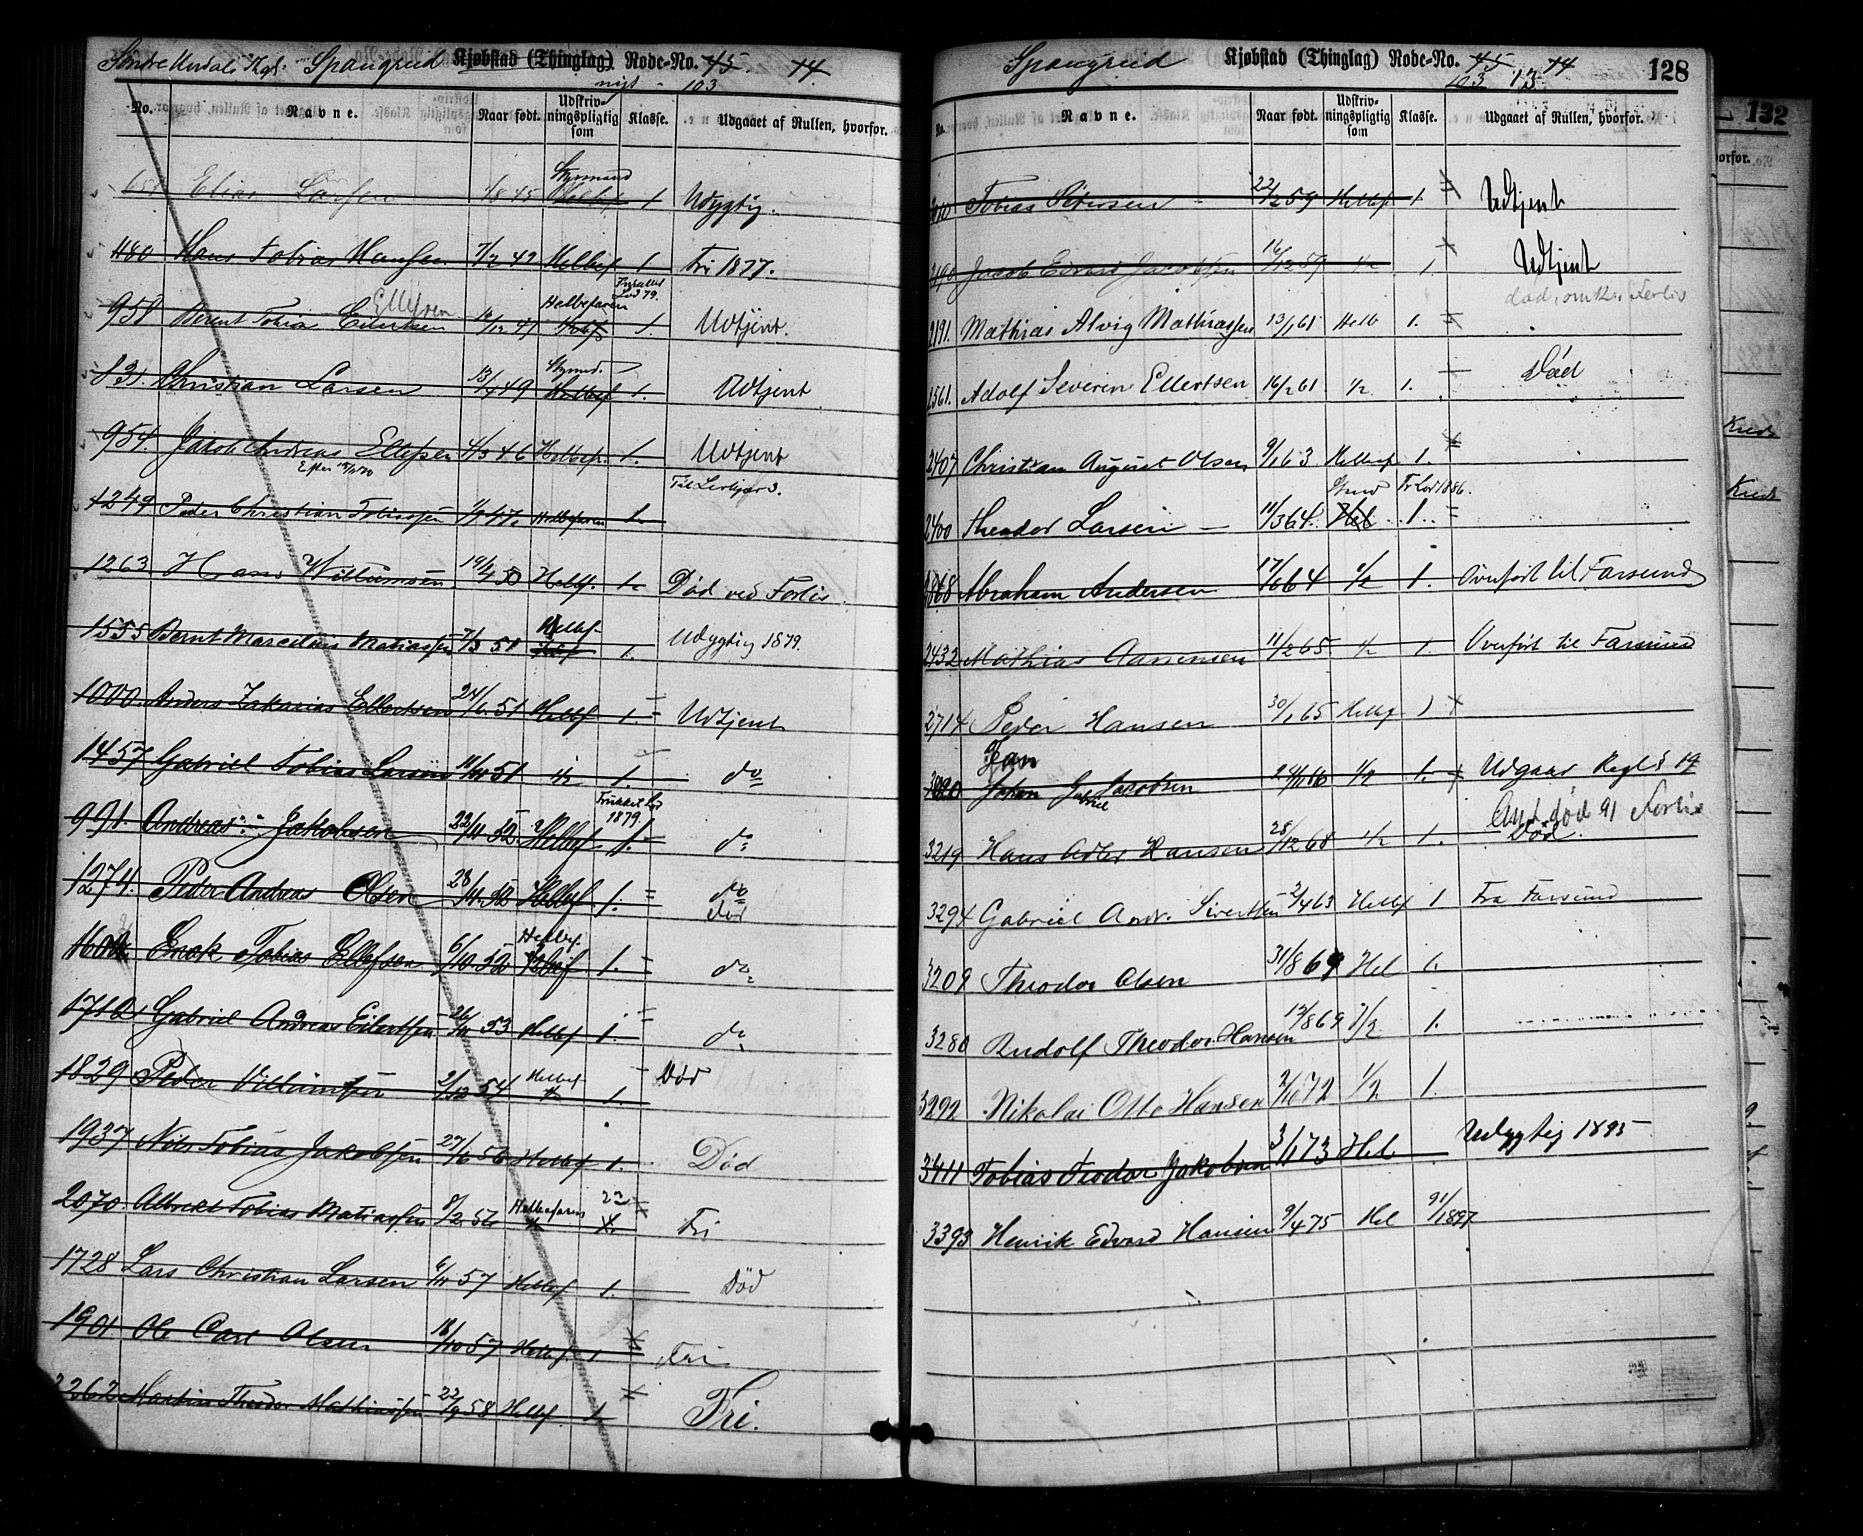 Spangreid Kjøbstad (Thinglag) Rode-No. 45. 14.
nyt - 103
No. Navne. Naar født. Udskrivningspligtig som Klasse. Udgaaet af Rullen, hvorfor.
Elias Larsen 1845 Styrmand Helbef 1 Udygtig.
480 Hans Tobias Hansen 7/2 42 Helbef 1 Fri 1877.
Ellefsen Helbefaren Lod 79.
958 Berent Tobia Eilertsen 1. Udtjent.
Styrmd.
831. Christian Larsen 13/4 49 Helbef 1. Udtjent
954. Jacob Andreas Ellefsen 4/5 46 Helbef. 1. Udtjent
1249 Peder Christian Tobiassen Helbefaren 1.
1263 Hans Willumsen 19/4 50 Helbf. 1. Død ved Forlis.
1555 Bernt Marcelius Matiassen 7/3 51 Helbf. 1. Udygtig 1879.
1000. Anders Zakarias Ellertsen 24/6 51 Helbf 1 = Udtjent
1457 Gabriel Tobias Larsen 51 1/2 1. do
Trukket Lod 1879.
991. Andreas Jakobsen 22/4 52. Helbef 1. do
1274. Peder Andreas Olsen 28/4 52 Helbef 1. = do
Død
Enok Tobias Ellefsen 6/10 52 Helbf. 1. = do
1712 Gabriel Andreas Eilertsen 53 Helbf 1. = do
1829 Peder Villumsen 2/12 54 Helbef 1. Død
1937 Nils Tobias Jakobsen 27/6 56 Helbef 1. Død
2070. Albrekt Tobias Matiassen 8/2 56 Helbefaren Fri
1728 Lars Christian Larsen 57 Helbef 1. Død
1901 Ole Carl Olsen 18/10 57 Helbf. 1 Fri
2262 Martin Theodor Mathiassen 22/9 58 Helbf. 1 Fri.
Spangreid Kjøbstad (Thinglag) Rode-No. 45 14 128
103 13
No. Navne. Naar født. Udskrivningspligtig som Klasse. Udgaaet af Rullen, hvorfor.
Tobias Petersen 22/2 59 Helbef 1. Udtjent
2190 Jacob Edvard Jacobsen 16/12 59 1/2 1. Udtjent
død, omk. Forlis
2191. Mathias Alvig Mathiassen 13/1 61 Helb 1.
2561. Adolf Severin Ellertsen 16/2 61 1/2 1. Død
2407 Christian August Olsen 9/1 63 Helbef 1
Fr Lod 1886.
2400 Theodor Larsen 11/3 64. Hel 1. =
Abraham Andersen 17/6 64 1/2 1. Overført til Farsund
2432 Mathias Aanensen 11/2 65 1/2 1. Overført til Farsund
2714 Peder Hansen 30/1 65 Helbf 1
Jan
Johan Gabriel Jacobsen 1/2 1. Udgaar Regl § 19
Ant. død 91 Forlis
3219 Hans Adler Hansen 28/12 68 1/2 1. Død.
3294 Gabriel Andr. Sivertsen 2/4 63 Helbf 1 Fra Farsund
3209 Theodor Olsen 31/8 69 Hel 1.
3280 Rudolf Theodor Hansen 13/8 69 1/2 1.
3292 Nikolai Otto Hansen 2/10 72 1/2 1.
3411 Tobias Teodor Jakobsen 3/1 73 Hel Udygtig 1895
3393 Henrik Edvard Hansen 9/4 75 Hel 91/1897
132
hvorfor.
Kreds
Kreds